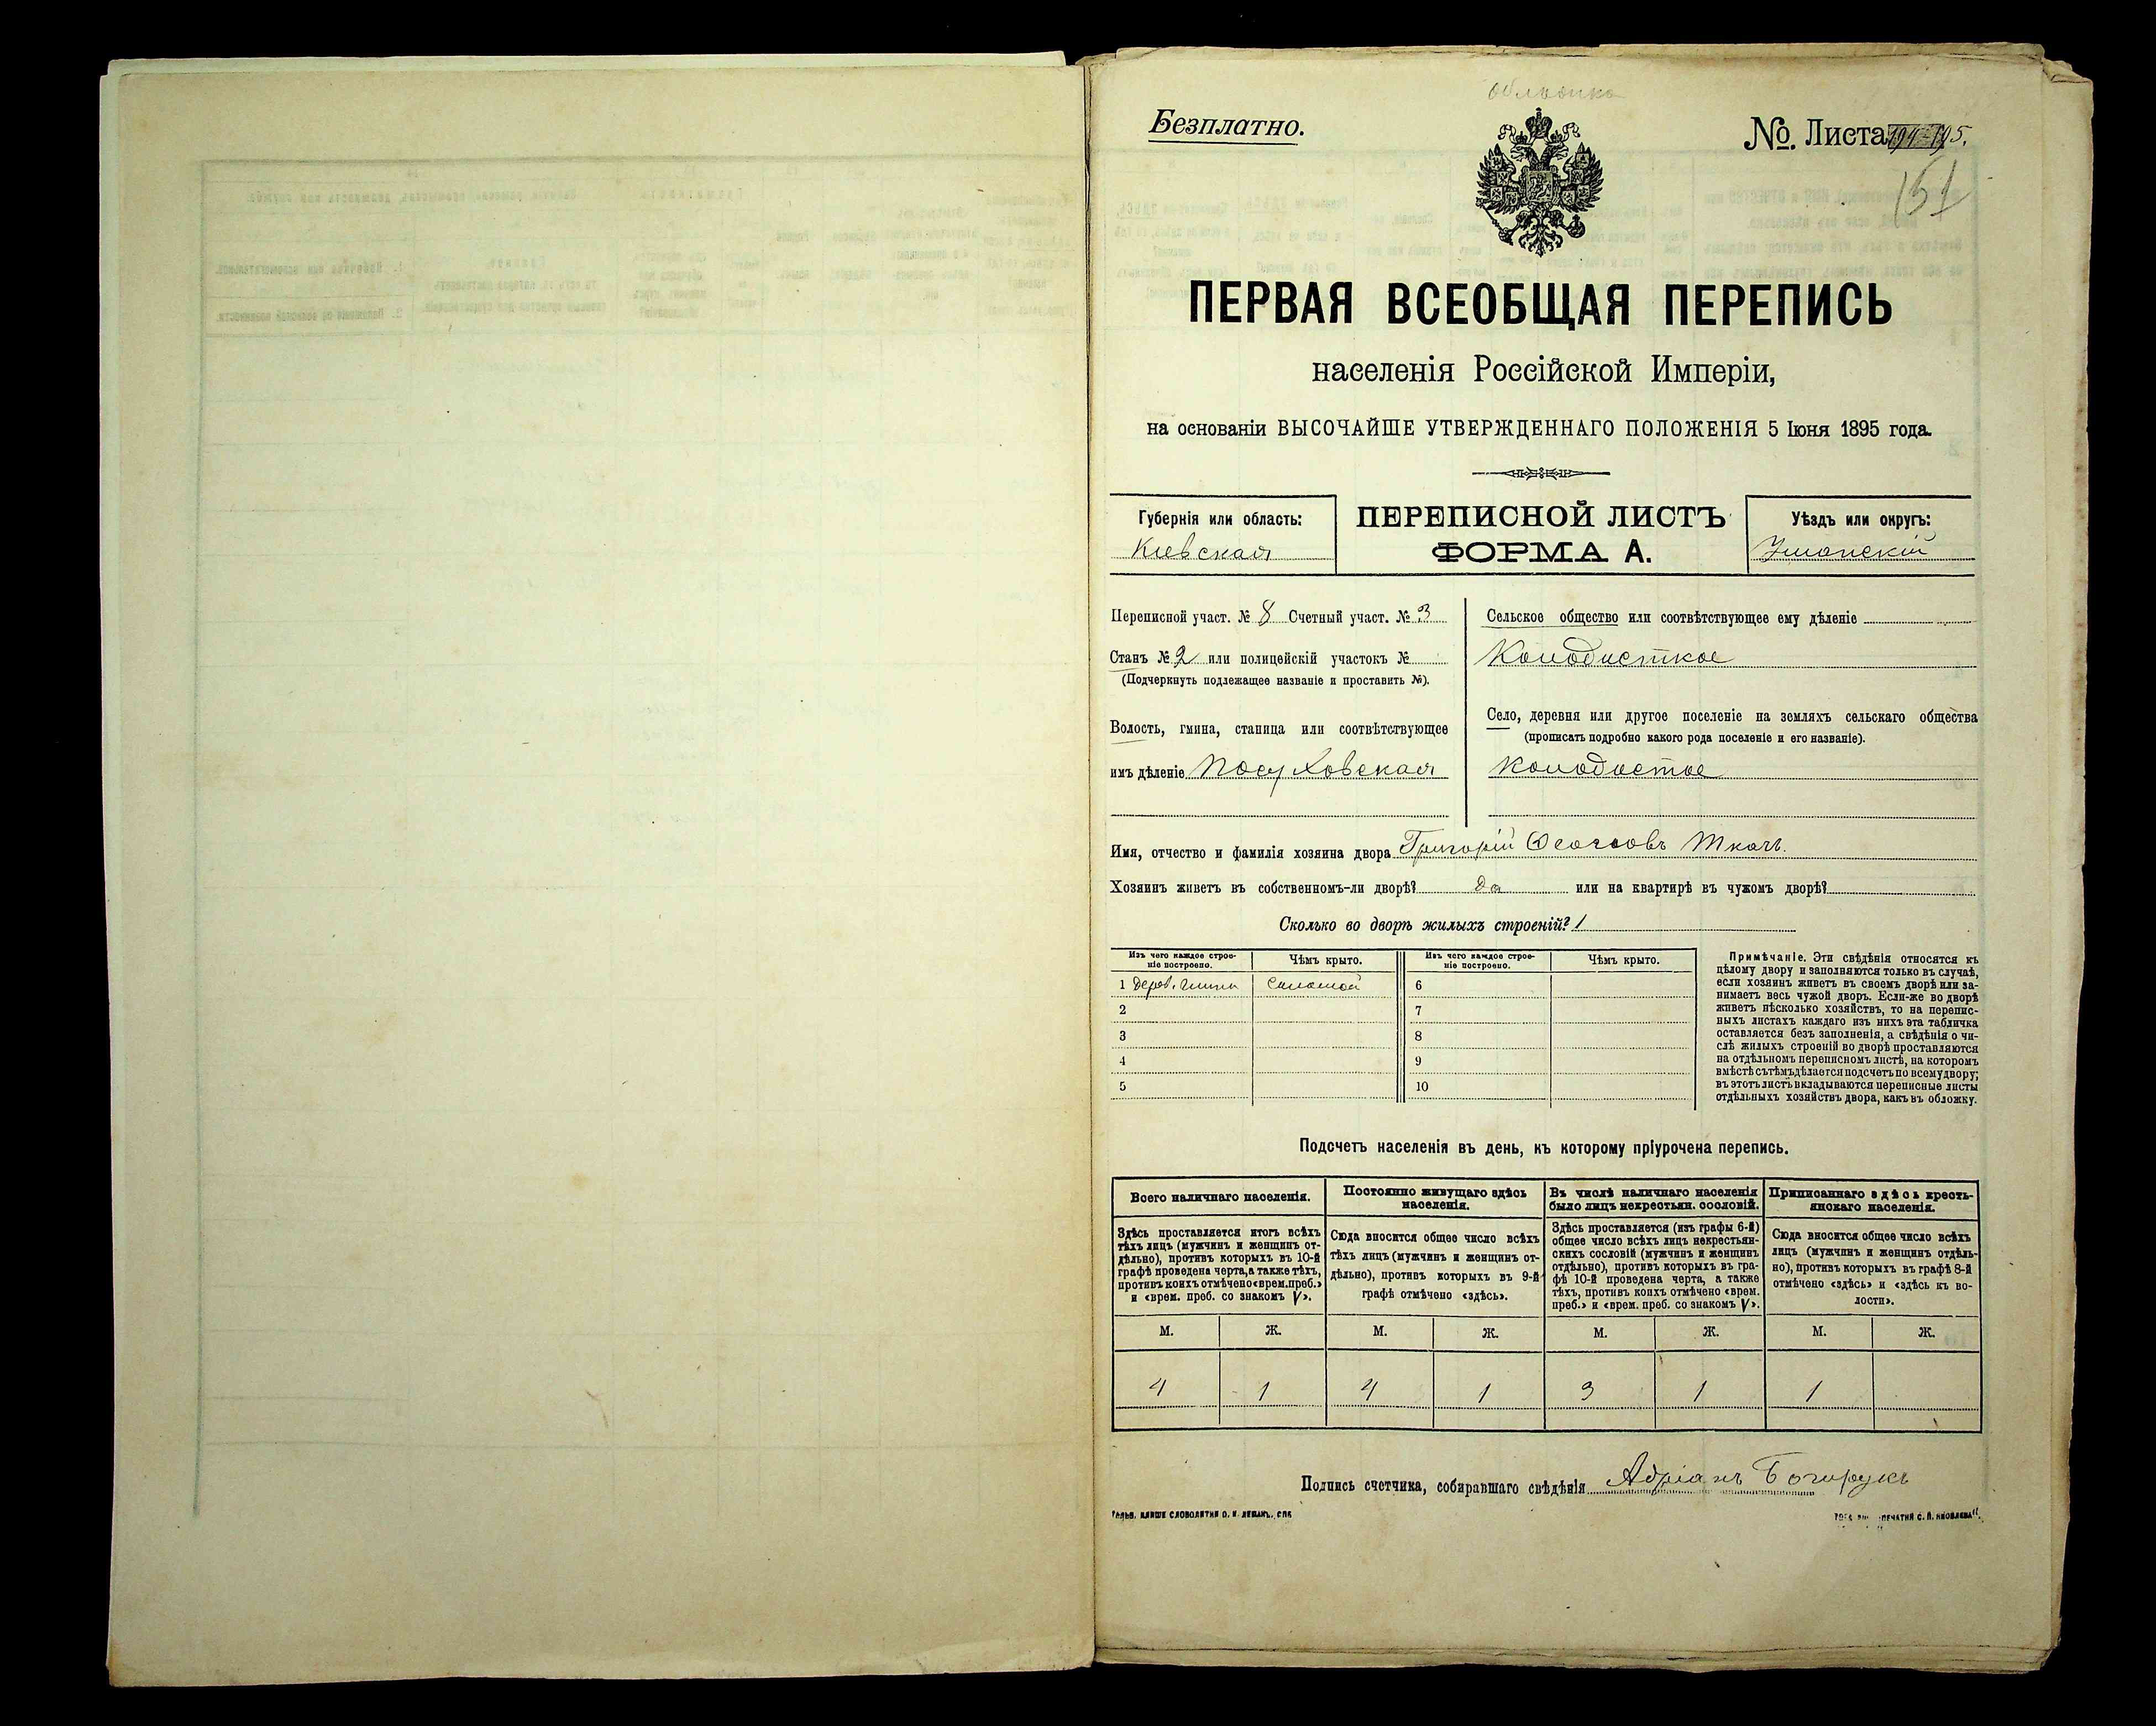 Безплатно.
№. Листа 5.
151
ПЕРВАЯ ВСЕОБЩАЯ ПЕРЕПИСЬ
населенія Россійской Имперіи,
на основаніи ВЫСОЧАЙШЕ УТВЕРЖДЕННАГО ПОЛОЖЕНІЯ 5 Іюня 1895 года.
Губернія или область:
Кіевская
ПЕРЕПИСНОЙ ЛИСТЪ
ФОРМА А.
Уѣздъ или округъ:
Уманскій
Переписной участ. № 8 Счетный участ. № 3
Станъ № 2 или полицейскій участокъ №
(Подчеркнуть подлежащее названіе и проставить №).
Волость, гмина, станица или соотвѣтствующее
имъ дѣленіе Посуховская
Сельское общество или соотвѣтствующее ему дѣленіе
Колодисткое
Село, деревня или другое поселеніе на земляхъ сельскаго общества
(прописать подробно какого рода поселеніе и его названіе).
Колодистое
Имя, отчество и фамилія хозяина двора Григорій Ткачъ.
Хозяинъ живетъ въ собственномъ-ли дворѣ? да или на квартирѣ въ чужомъ дворѣ?
Сколько во дворѣ жилыхъ строеній? 1
Изъ чего каждое строе-
ніе построено.
Чѣмъ крыто.
Изъ чего каждое строе-
ніе построено.
Чѣмъ крыто.
1 дерев. глины соломой 6
2 7
3 8
4 9
5 10
Примѣчаніе. Эти свѣдѣнія относятся къ
цѣлому двору и заполняются только въ случаѣ,
если хозяинъ живетъ въ своемъ дворѣ или за-
нимаетъ весь чужой дворъ. Если-же во дворѣ
живетъ нѣсколько хозяйствъ, то на перепис-
ныхъ листахъ каждаго изъ нихъ эта табличка
оставляется безъ заполненія, а свѣдѣнія о чи-
слѣ жилыхъ строеній во дворѣ проставляются
на отдѣльномъ переписномъ листѣ, на которомъ
вмѣстѣ съ тѣмъ дѣлается подсчетъ по всему двору;
въ этотъ листъ вкладываются переписные листы
отдѣльныхъ хозяйствъ двора, какъ въ обложку.
Подсчетъ населенія въ день, къ которому пріурочена перепись.
Всего наличнаго населенія.
Здѣсь проставляется итогъ всѣхъ
тѣхъ лицъ (мужчинъ и женщинъ от-
дѣльно), противъ которыхъ въ 10-й
графѣ проведена черта, а также тѣхъ,
противъ коихъ отмѣчено «врем. преб.»
и «врем. преб. со знакомъ V».
Постоянно живущаго здѣсь
населенія.
Сюда вносится общее число всѣхъ
тѣхъ лицъ (мужчинъ и женщинъ от-
дѣльно), противъ которыхъ въ 9-й
графѣ отмѣчено «здѣсь».
Въ числѣ наличнаго населенія
было лицъ некрестьян. сословій.
Здѣсь проставляется (изъ графы 6-й)
общее число всѣхъ лицъ некрестьян-
скихъ сословій (мужчинъ и женщинъ
отдѣльно), противъ которыхъ въ гра-
фѣ 10-й проведена черта, а также
тѣхъ, противъ коихъ отмѣчено «врем.
преб.» и «врем. преб. со знакомъ V».
Приписаннаго здѣсь кресть-
янскаго населенія.
Сюда вносится общее число всѣхъ
лицъ (мужчинъ и женщинъ отдѣль-
но), противъ которыхъ въ графѣ 8-й
отмѣчено «здѣсь» и «здѣсь къ во-
лости».
М. Ж. М. Ж. М. Ж. М. Ж.
4 1 4 1 3 1 1
Подпись счетчика, собиравшаго свѣдѣнія Адріанъ